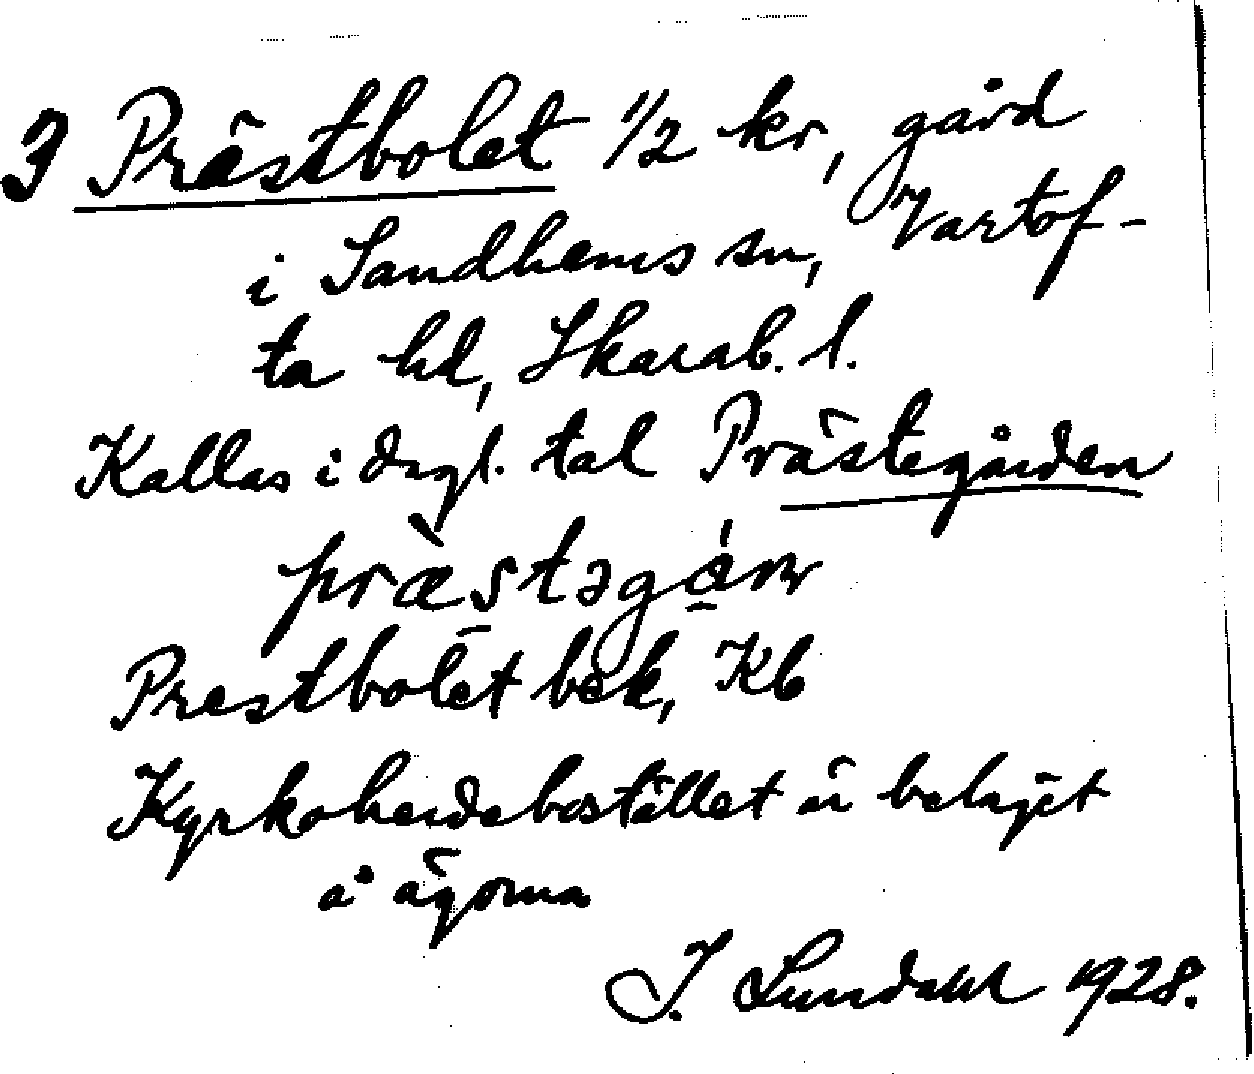 3 Prästbolet 1/2 kr, gård
i Sandhems sn, Vartof-
ta hd, Skarab. l.
Kallas i dagl. tal Prästegården
Prestbolet bek, Kb
Kyrkoherdebostället är beläget
å ägorna
I. Lundahl 1928.